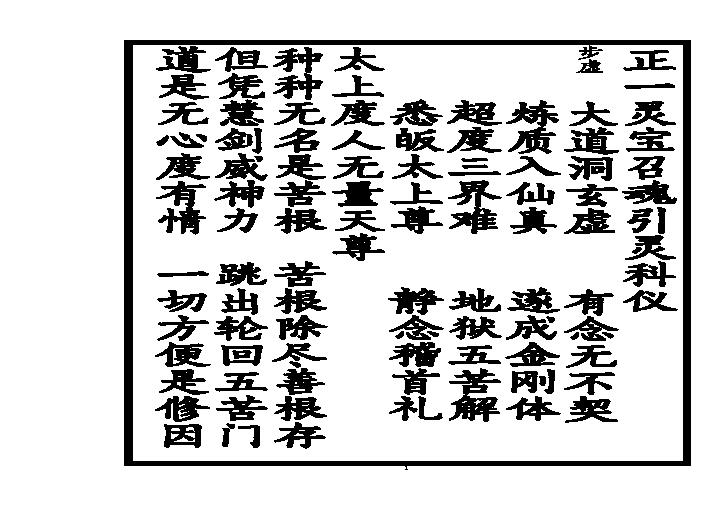 正一灵宝召魂引灵科仪
步虚
大道洞玄虚 有念无不契
炼质入仙真 遂成金刚体
超度三界难 地狱五苦解
悉皈太上尊 静念稽首礼
太上度人无量天尊
种种无名是苦根 苦根除尽善根存
但凭慧剑威神力 跳出轮回五苦门
道是无心度有情 一切方便是修因
1